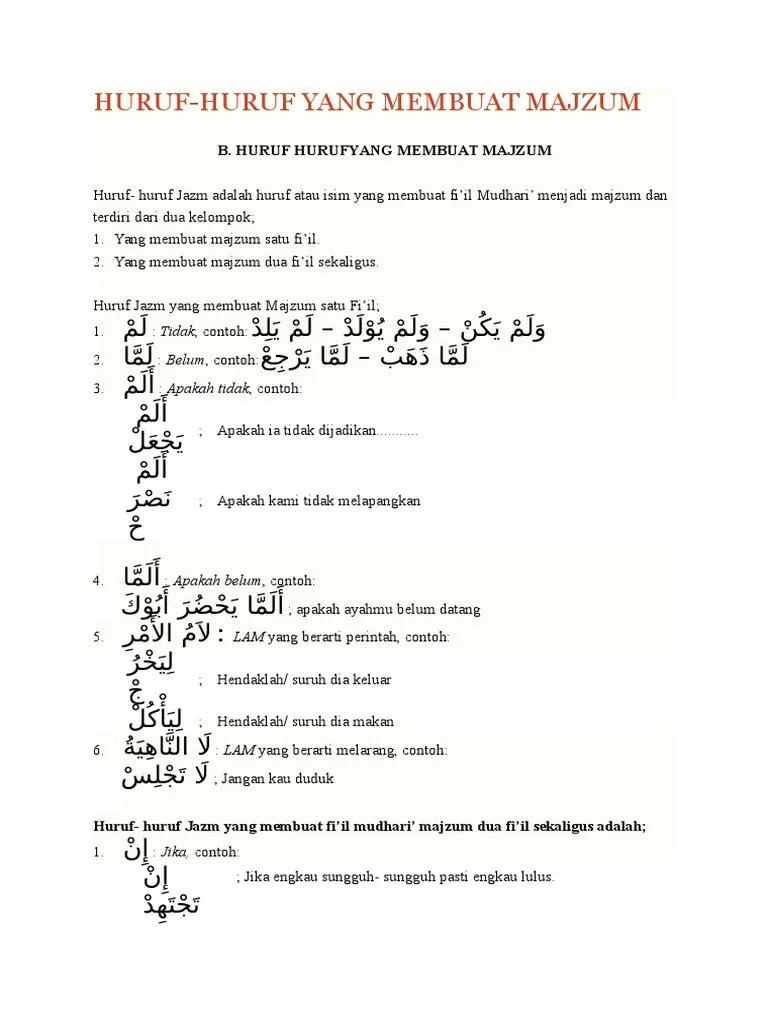 HURUF-HURUF YANG MEMBUAT MAJZUM
B. HURUF HURUFYANG MEMBUAT MAJZUM
Huruf- huruf Jazm adalah huruf atau isim yang membuat fi’il Mudhari’ menjadi majzum dan
terdiri dari dua kelompok;
1. Yang membuat majzum satu fi’il.
2. Yang membuat majzum dua fi’il sekaligus.
Huruf Jazm yang membuat Majzum satu Fi’il;
1. لَمْ : Tidak, contoh: وَلَمْ يَكُنْ – وَلَمْ يُوْلَدْ – لَمْ يَلِدْ
2. لَمَّا : Belum, contoh: لَمَّا ذَهَبْ – لَمَّا يَرْجِعْ
3. أَلَمْ : Apakah tidak, contoh:
أَلَمْ
يَجْعَلْ ; Apakah ia tidak dijadikan...........
أَلَمْ
نَصْرَ ; Apakah kami tidak melapangkan
حْ
4. أَلَمَّا : Apakah belum, contoh:
أَلَمَّا يَحْضُرَ أَبُوْكَ ; apakah ayahmu belum datang
5. لاَمُ الأَمْرِ : LAM yang berarti perintah, contoh:
لِيَخْرُ
جْ ; Hendaklah/ suruh dia keluar
لِيَأْكُلْ ; Hendaklah/ suruh dia makan
6. لَا النَّاهِيَةُ : LAM yang berarti melarang, contoh:
لَا تَجْلِسْ ; Jangan kau duduk
Huruf- huruf Jazm yang membuat fi’il mudhari’ majzum dua fi’il sekaligus adalah;
1. إِنْ : Jika, contoh:
إِنْ ; Jika engkau sungguh- sungguh pasti engkau lulus.
تَجْتَهِدْ